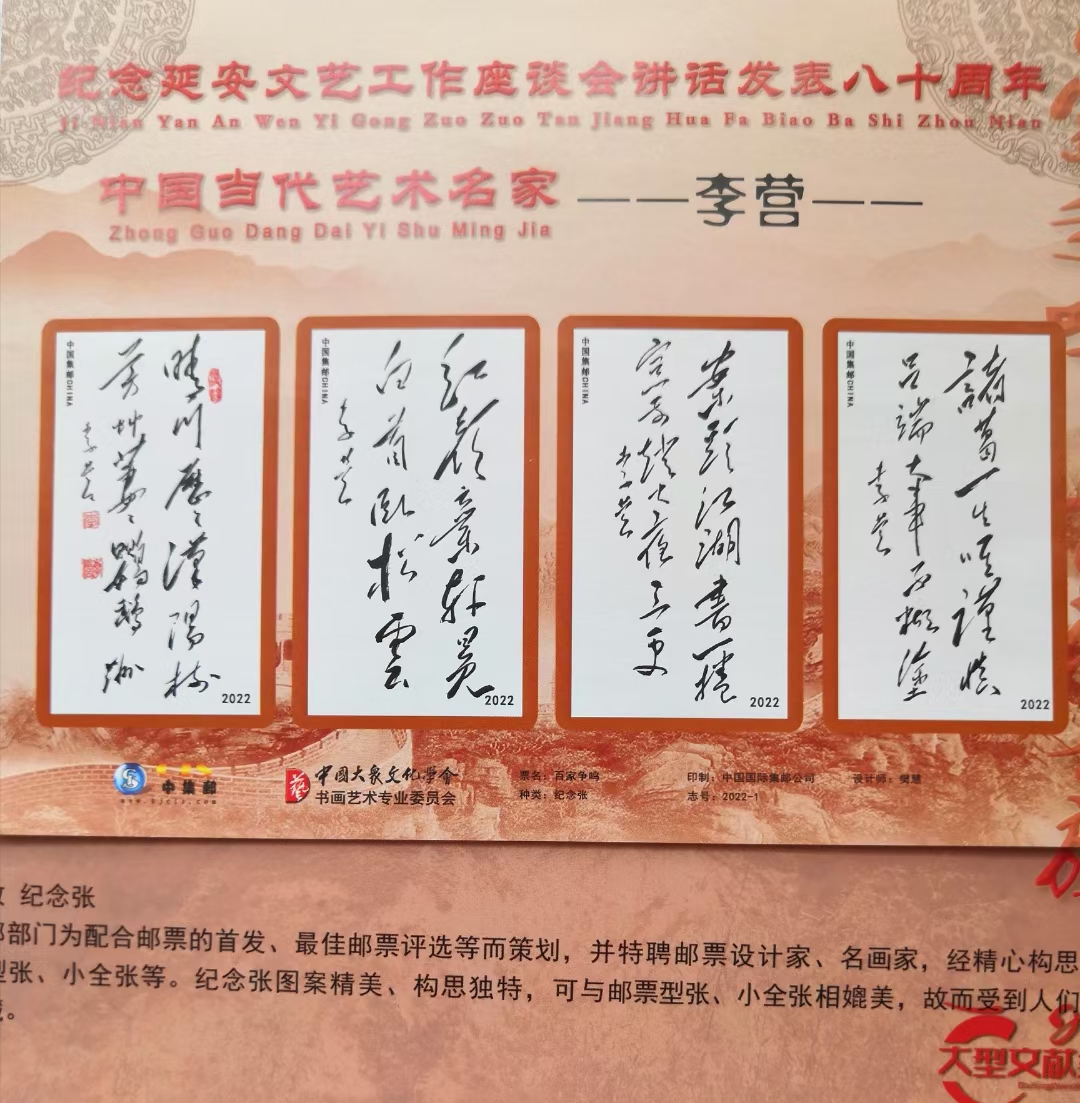 纪念延安文艺工作座谈会讲话发表八十周年
Ji Nian Yan An Wen Yi Gong Zuo Zuo Tan Jiang Hua Fa Biao Ba Shi Zhou Nian
中国当代艺术名家——李营——
Zhong Guo Dang Dai Yi Shu Ming Jia
中国集邮CHINA
晴川历历漢陽樹
芳草萋萋鹦鹉洲
李营
2022
中国集邮CHINA
红颜弃轩冕
白首卧松雲
李营
2022
中国集邮CHINA
案头江湖書一捲
窗前燈火夜三更
李营
2022
中国集邮CHINA
諸葛一生唯謹慎
吕端大事不糊塗
李营
2022
中集邮
中国大众文化学会
书画艺术专业委员会
票名：百家争鸣
种类：纪念张
印制：中国国际集邮公司
志号：2022-1
设计师：樊慧
纪念张
部门为配合邮票的首发、最佳邮票评选等而策划，并特聘邮票设计家、名画家，经精心构思
型张、小全张等。纪念张图案精美、构思独特，可与邮票型张、小全张相媲美，故而受到人们
大型文献